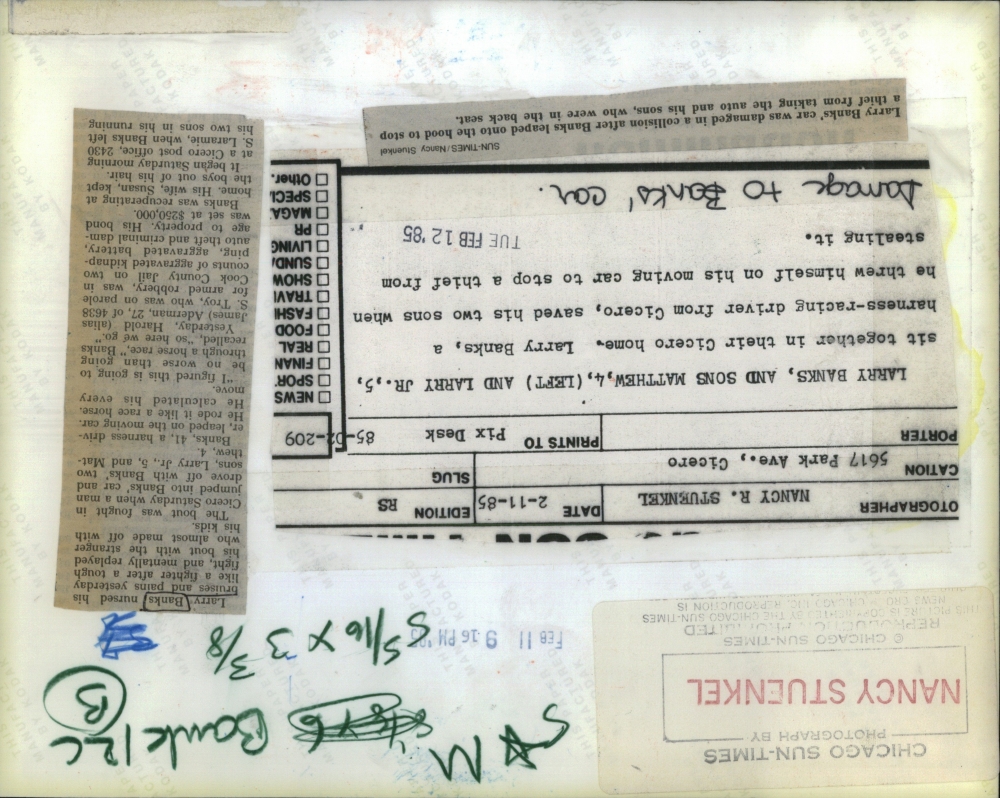 CHICAGO SUN-TIMES
PHOTOGRAPH BY
NANCY STUENKEL
© CHICAGO SUN-TIMES
REPRODUCTION PROHIBITED
THIS PICTURE IS COPYRIGHTED BY THE CHICAGO SUN-TIMES
REPRODUCTION IS
S M
Bank 12C
B
5/16 X 3 3/8
FEB 11 9 16 PM '85
OTOGRAPHER
NANCY R. STUENKEL
DATE
2-11-85
EDITION
RS
CATION
5617 Park Ave., Cicero
SLUG
PORTER
PRINTS TO
Pix Desk
85-02-209
LARRY BANKS, AND SONS MATTHEW,4,(LEFT) AND LARRY JR.,5,
sit together in their Cicero home. Larry Banks, a
harness-racing driver from Cicero, saved his two sons when
he threw himself on his moving car to stop a thief from
stealing it.
TUE FEB 12 '85
Damage to Banks' car.
NEWS
SPOR
FINAN
REAL
FOOD
FASHI
TRAV
SHOW
SUND
LIVING
PR
MAGA
SPECI
Other.
SUN-TIMES/Nancy Stuenkel
Larry Banks' car was damaged in a collision after Banks leaped onto the hood to stop
a thief from taking the auto and his sons, who were in the back seat.
Larry Banks nursed his
bruises and pains yesterday
like a fighter after a tough
fight, and mentally replayed
his bout with the stranger
who almost made off with
his kids.
The bout was fought in
Cicero Saturday when a man
jumped into Banks' car and
drove off with Banks' two
sons, Larry Jr., 5, and Mat-
thew, 4.
Banks, 41, a harness driv-
er, leaped on the moving car.
He rode it like a race horse.
He calculated his every
move.
"I figured this is going to
be no worse than going
through a horse race," Banks
recalled, "so here we go."
Yesterday, Harold (alias
James) Aderman, 27, of 4638
S. Troy, who was on parole
for armed robbery, was in
Cook County Jail on two
counts of aggravated kidnap-
ping, aggravated battery,
auto theft and criminal dam-
age to property. His bond
was set at $250,000.
Banks was recuperating at
home. His wife, Susan, kept
the boys out of his hair.
It began Saturday morning
at a Cicero post office, 2430
S. Laramie, when Banks left
his two sons in his running